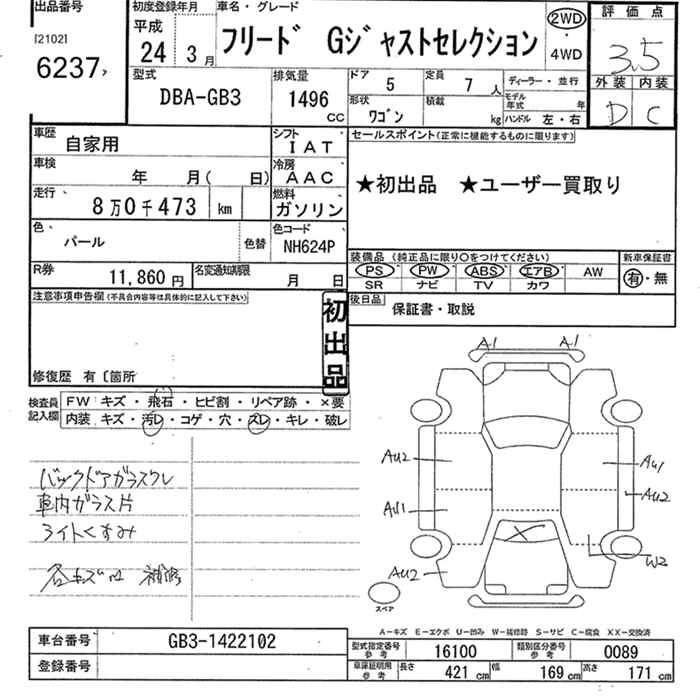 出品番号
[2102]
6237
初度登録年月
平成
24 3月
車名・グレード
フリード Gジャストセレクション
2WD
・
4WD
評価点
3.5
外装 内装
D C
型式
DBA-GB3
排気量
1496
CC
ドア 5
定員 7 人
ディーラー・並行
形状
ワゴン
積載
kg
モデル年式 年
ハンドル 左・右
車歴
自家用
シフト
IAT
車検
年 月( 日)
冷房
AAC
走行
8万0千473 km
燃料
ガソリン
色
パール
色替
色コード
NH624P
R券
11,860円
名変通知期限
月 日
セールスポイント(正常に機能するものに限ります)
★初出品 ★ユーザー買取り
装備品(純正品に限り○をつけてください)
PS PW ABS エアB AW
SR ナビ TV カワ
新車保証書
有・無
後日品
保証書・取説
注意事項申告欄(不具合内容等は具体的に記入して下さい)
初出品
修復歴 有〔箇所
検査員記入欄
FW キズ・飛石・ヒビ割・リペア跡・×要
内装 キズ・汚レ・コゲ・穴・スレ・キレ・破レ
バックドアガラスワレ
車内ガラス片
ライトくすみ
補修
A1 A1
AU2
AU1
AU1
AU2
AU2
W2
スペア
A-キズ E-エクボ U-凹み W-補修跡 S-サビ C-腐食 XX-交換済
車台番号
GB3-1422102
登録番号
型式指定番号参考
16100
類別区分番号参考
0089
車庫証明用参考
長さ 421 cm
幅 169 cm
高さ 171 cm